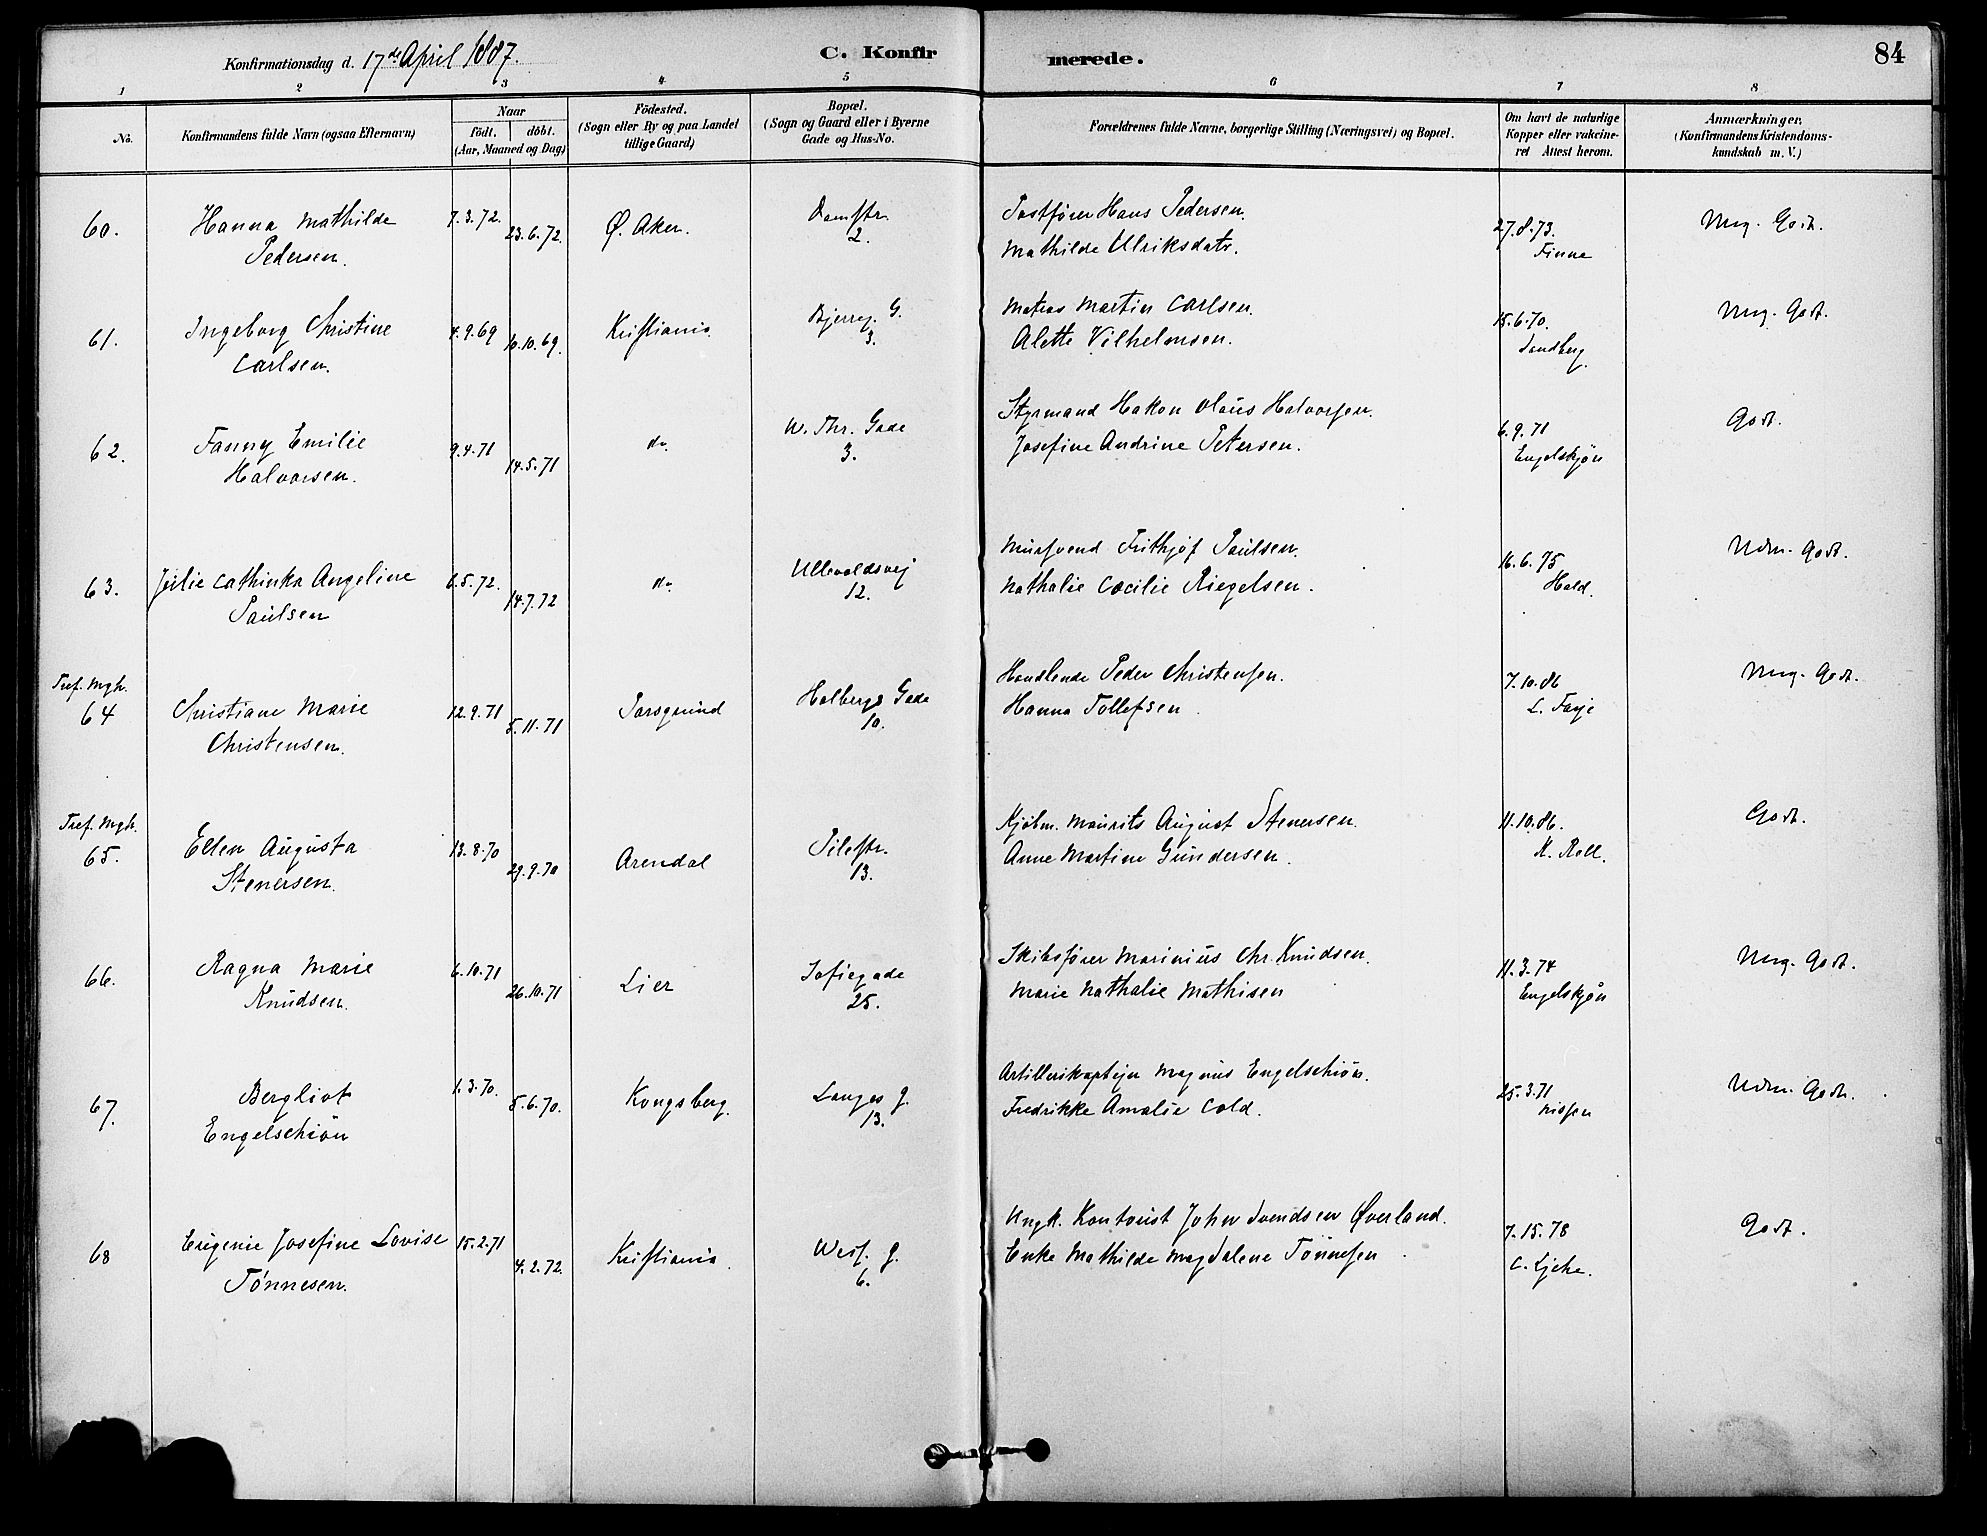 Konfirmationsdag d. 17de April 1887.
C. Konfirmerede.
84
1 2 3 4 5 6 7 8
No.
Konfirmandens fulde Navn (ogsaa Efternavn)
Naar
födt. döbt.
(Aar, Maaned og Dag)
Födested.
(Sogn eller By og paa Landet
tillige Gaard)
Bopæl.
(Sogn og Gaard eller i Byerne
Gade og Hus-No.
Forældrenes fulde Navne, borgerlige Stilling (Næringsvei) og Bopæl.
Om havt de naturlige
Kopper eller vakcine-
ret Attest herom.
Anmærkninger.
(Konfirmandens Kristendoms-
kundskab m. V.)
60.
Hanna Mathilde
Pedersen.
7.3.72.
23.6.72.
Ø. Aker.
Damstr.
2.
Postfører Hans Pedersen.
Mathilde Ulriksdatr.
27.8.73.
Finne
Meg. Godt.
61.
Ingeborg Christine
Carlsen.
4.9.69
10.10.69.
Kristiania.
Bjerreg. G.
3.
Matros Martin Carlsen.
Alette Vilhelmsen.
15.6.70.
Sandberg.
Meg. Godt.
62.
Fanny Emilie
Halvorsen.
9.4.71
14.5.71
do.
W. Thr. Gade
3.
Styrmand Hakon Olaus Halvorsen.
Josefine Andrine Petersen.
6.9.71
Engelskjön
Godt.
63.
Julie Cathinka Angeline
Paulsen
6.5.72.
14.7.72
do.
Ullevoldsvej
12.
Mursvend Frithjof Paulsen.
Nathalie Cæcilie Riegelsen.
16.6.75
Hald.
Udm. Godt.
Tref. Mgh.
64
Christiane Marie
Christensen.
12.9.71
5.11.71
Porsgrund
Holbergs Gade
10.
Handlende Peder Christensen.
Hanna Tollefsen
7.10.86
L. Faye
Meg. Godt.
Tref. Mgh.
65.
Ellen Augusta
Stenersen.
13.8.70
29.9.70
Arendal
Pilestr.
13.
Kjøbm. Maurits August Stenersen.
Anne Martine Gundersen.
11.10.86.
K. Roll.
Godt.
66.
Ragna Marie
Knudsen.
6.10.71
26.10.71
Lier
Sofiegade
25.
Skibsfører Marinius Chr. Knudsen.
Marie Nathalie Mathisen
11.3.74
Engelskjön
Meg. Godt.
67.
Bergliot
Engelschiön
1.3.70.
5.6.70.
Kongsberg.
Langes g.
13.
Artillerikaptejn Magnus Engelschiön.
Fredrikke Amalie Cold.
25.3.71
Nissen
Udm. Godt.
68
Eugenie Josefine Lovise
Tønnesen.
15.2.71
4.2.72.
Kristiania.
Wess. g.
6.
Ungk. Kontorist John Svendsen Øverland.
Enke Mathilde Magdalene Tönnesen.
7.15.78
Godt.